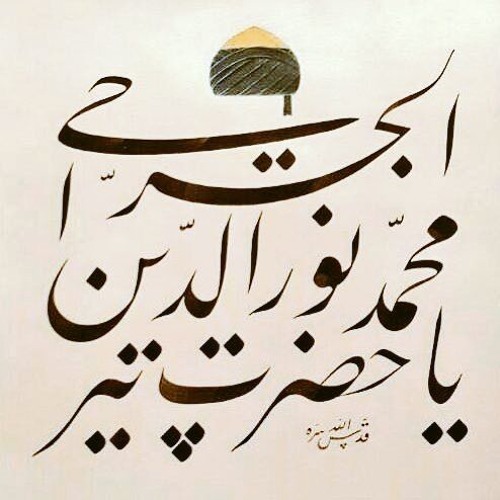 يا حضرت پير
محمّد نور الدّين
الجرّاحي
قدّس الله سرّه